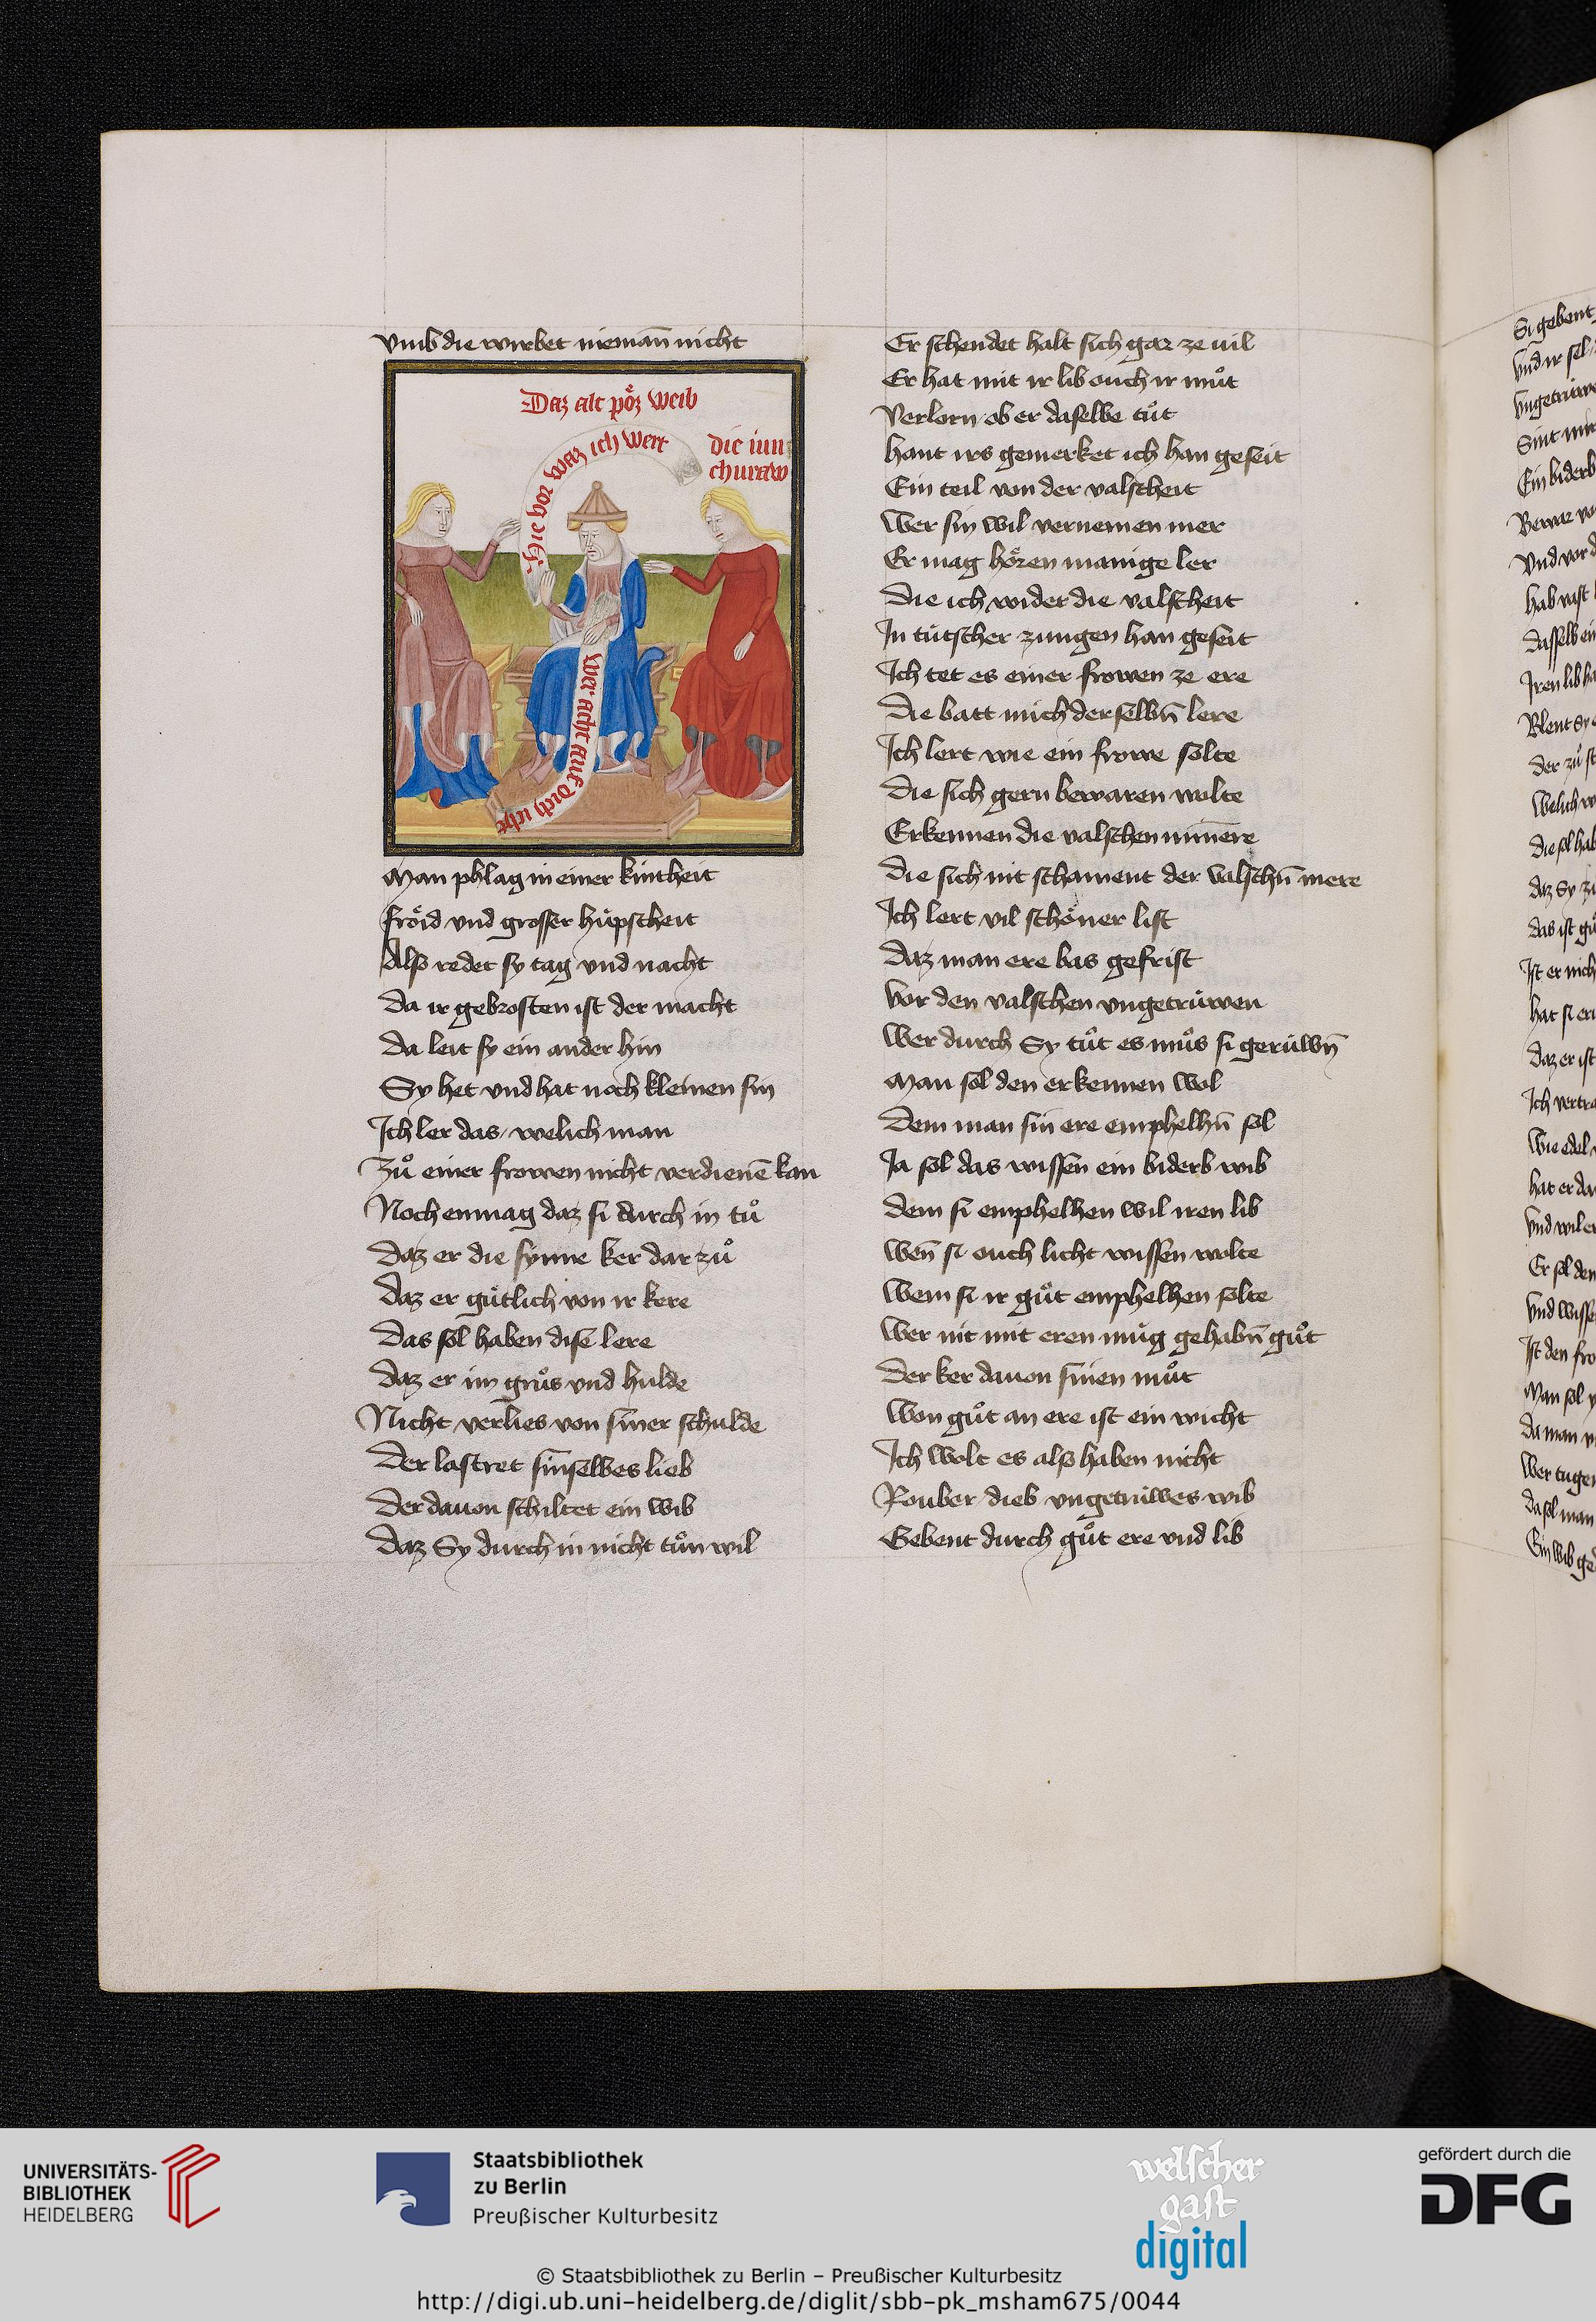 Vmb die wirbet niemañ nicht
Daz alt pöz weib
die iun
churaw
Hie vor waz ich wert
wer acht auf dich icht
Man phlag in einer kintheit
fröid vnd grosser hüpscheit
Also redet sy tag vnd nacht
Da ir gebrosten ist der macht
Da leit sy ein ander hin
Sy het vnd hat noch kleinen sin
Ich ler das / welich man
Zuͦ einer frowen nicht verdienē kan
Noch enmag daz si durch in tuͦ
Daz er die synne ker dar zuͦ
Daz er guͤtlich von ir kere
Das sol haben dise lere
Daz er im gruͦs vnd hulde
Nicht verlies von siner schulde
Der lastret sinselbes lieb
Der dauon schiltet ein wib
Daz Sy durch in nicht tuͦn wil
Er schendet halt sich gar ze uil
Er hat mit ir lib ouch ir muͦt
Verlorn ob er daselbe tuͦt
Hant irs gemerket ich han geseit
Ein teil von der valscheit
Wer sin wil vernemen mer
Er mag hören manige ler
Die ich wider die valscheit
In tütscher zungen han geseit
Ich tet es einer frowen ze ere
Die batt mich der selbn̄ lere
Ich lert wie ein frowe solte
Die sich gern bewaren wolte
Erkennen die valschen minnere
Die sich nit schament der valschn̄ mere
Ich lert vil schöner list
Daz man ere bas gefrist
Vor den valschen vngetrüwen
Wer durch Sy tuͦt es muͦs si gerüwn̄
Man sol den erkennen wol
Dem man sin ere emphelhn̄ sol
Ja sol das wissen ein biderb wib
Dem si emphelhen wil iren lib
Wen̄ si ouch licht wissen wolte
Wem si ir guͦt emphelhen solte
Wer nit mit eren müg gehabn̄ guͦt
Der ker dauon sinen muͦt
Won guͦt an ere ist ein wicht
Ich wolt es also haben nicht
Rouber dieb vngetrüwes wib
Gebent durch guͦt ere vnd lib
Si gebent
Vnd ir sol
Vngetrüwe
Ein biderb
Vnd vor d
Hab vast
Iren lib ha
Der zuͦ st
Die sol hab
Daz Sy zu
das ist gü
Ist er nich
Daz er ist
Ich vertr
Wie edel
hat er da
Vnd wil er
Er sol den
Vnd wisse
Ist den fro
Man sol
Da man
Wer tugen
da sol man
Ein wib ge
UNIVERSITÄTS-
BIBLIOTHEK
HEIDELBERG
Staatsbibliothek
zu Berlin
Preußischer Kulturbesitz
welscher
gast
digital
gefördert durch die
DFG
© Staatsbibliothek zu Berlin – Preußischer Kulturbesitz
http://digi.ub.uni-heidelberg.de/diglit/sbb-pk_msham675/0044